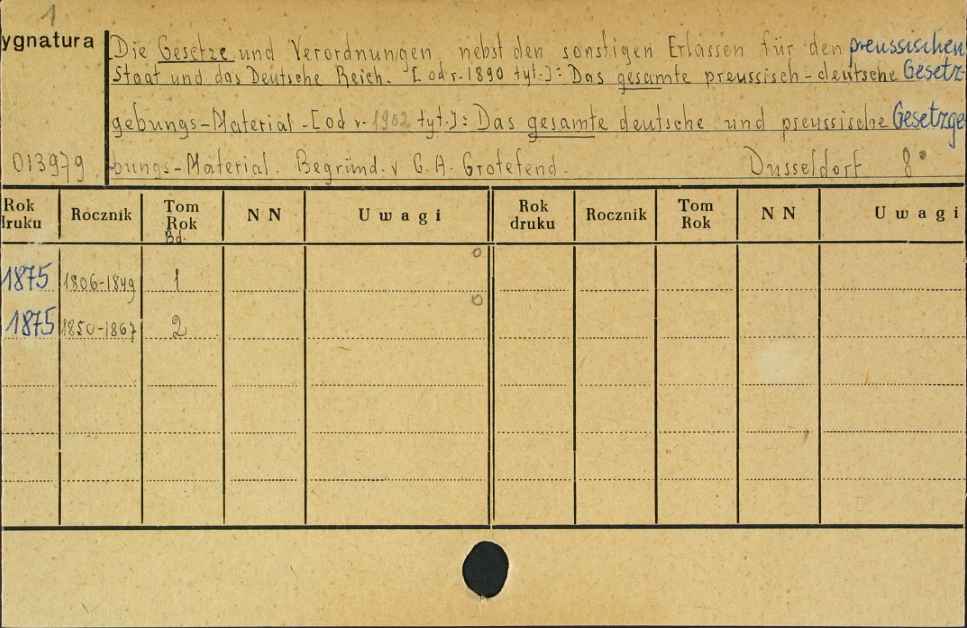 1
ygnatura
Die Gesetze und Verordnungen nebst den sonstigen Erlassen für den preussischen
Staat und das Deutsche Reich. [od r. 1890 tyt.]: Das gesamte preussisch-deutsche Gesetz-
gebungs-Material. [od r. 1902 tyt.]: Das gesamte deutsche und preussische Gesetzge
013979 bungs-Material. Begründ. v G. A. Grotefend. Dusseldorf 8°
Rok druku Rocznik Tom Rok NN Uwagi Rok druku Rocznik Tom Rok NN Uwagi
Bd.
1875 1806-1849 1
1875 1850-1867 2